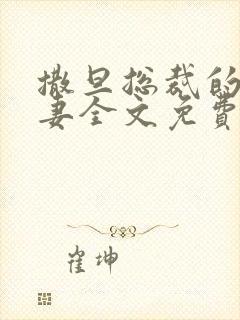 撒旦总裁的
妻全文免费
崔坤